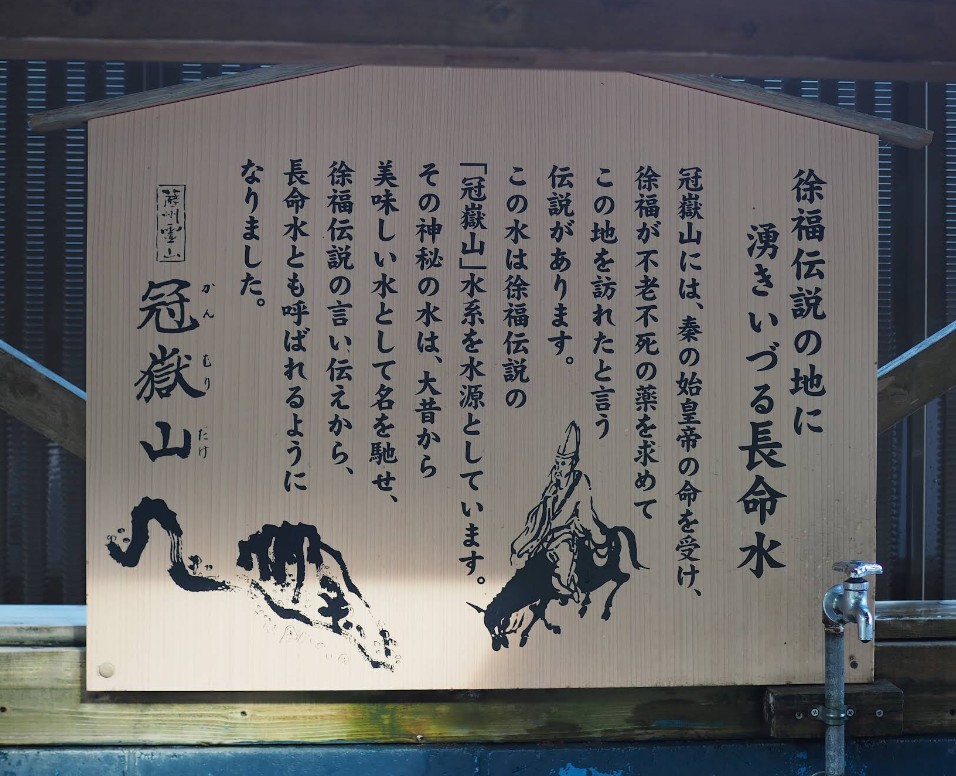 徐福伝説の地に
湧きいづる長命水
冠嶽山には、秦の始皇帝の命を受け、
徐福が不老不死の薬を求めて
この地を訪れたと言う
伝説があります。
この水は徐福伝説の
「冠嶽山」水系を水源としています。
その神秘の水は、大昔から
美味しい水として名を馳せ、
徐福伝説の言い伝えから、
長命水とも呼ばれるように
なりました。
薩州霊山
冠嶽山
かんむりたけ